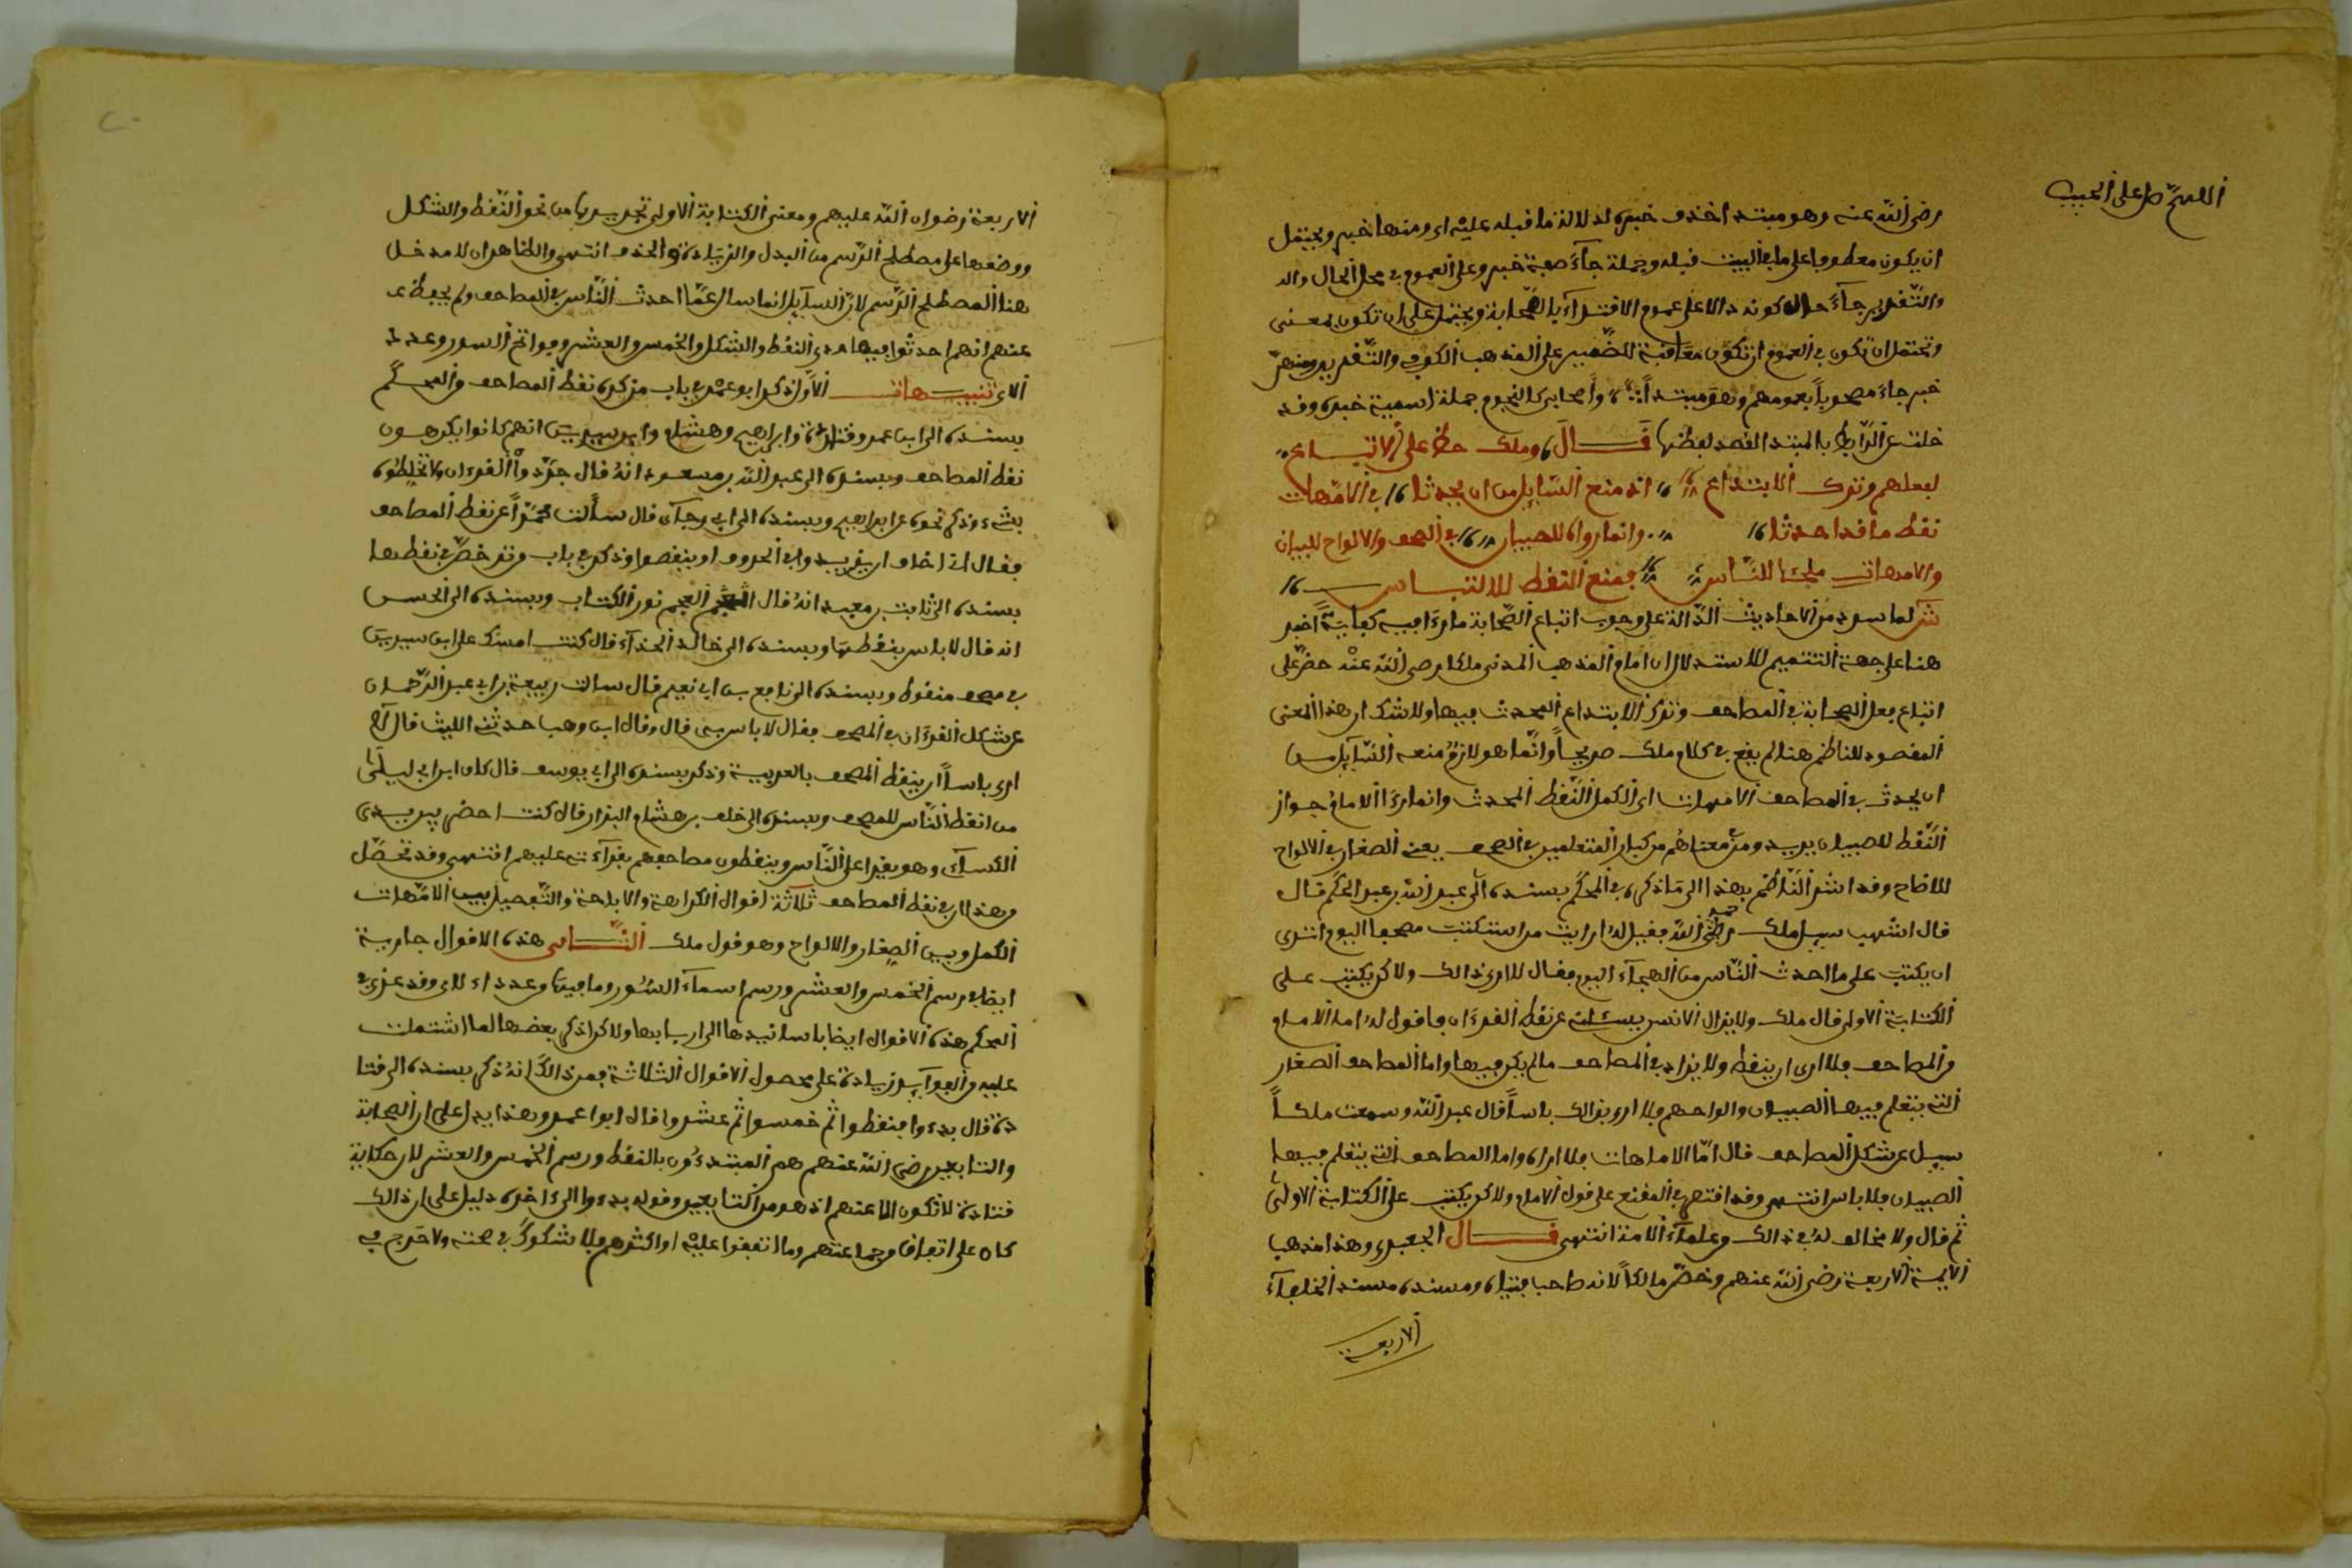 اللهم صل على الحبيب
رضى الله عنه وهو مبتدا حذف خبره لدلالة ما قبله عليه اى ومنها خبر ويحتمل
ان يكون معطوفا على ما فى البيت قبله وجملة جآء صفة خبر وعلى العموم فى محل الحال
والتقدير جآء حال كونه دالا على عموم الاقتدآء بالصحابة ويحتمل على ان تكون بمعنى
وتحتمل ان تكون فى العموم ان تكون معاقبة للضمير على المذهب الكوفى والتقدير ومنهم
خبر جاء مصحوبا بعمومهم وهو مبتدأ واصحابى كالنجوم جملة اسمية خبره وقد
خلت عن الرابط بالمبتدا لقصد لفظها قال ومالك حض على الاتباع
لفعلهم وترك الابتداع اذ منع السايل من ان يحدثا فى الامهات
نقط ما قد احدثا وانما رواه للصبيان فى الصحف والالواح للبيان
والامهات ملجئا للناس فمنع النقط للالتباس
ش لما سرد من الاحاديث الدالة على وجوب اتباع الصحابة ما رءا فيه كفاية اخبر
هنا على جهة التتميم للاستدلال ان امام المذهب المدنى ملكا رضى الله عنه حض على
اتباع فعل الصحابة فى المصاحف وترك الابتداع المحدث فيها ولا شك ان هذا المعنى
المقصود للناظم هنا لم يقع فى كلام ملك صريحا وانما هو لازم منعه السآيل من
ان يحدث فى المصاحف الامهات اى الكمل النقط المحدث وانما رءا الامام جواز
النقط للصبيان يريد ومن معناهم من كبار المتعلمين فى الصحف يعنى الصغار فى الالواح
للايضاح وقد اشار الناظم بهذا الى ما ذكره فى المحكم بسنده الى عبد الله بن عبد الحكم قال
قال اشهب سيل ملك رحمه الله فقيل له ارايت من استكتب مصحفا اليوم اترى
ان يكتب على ما احدث الناس من الهجآء اليوم فقال لا ارى ذالك ولاكن يكتب على
الكتابة الاولى قال ملك ولا يزال الانسن يسئلنى عن نقط القرءان فاقول له اما الامام
من المصاحف فلا ارى ان ينقط ولا يزاد فى المصاحف ما لم يكن فيها واما المصاحف الصغار
التى يتعلم فيها الصبيان والواحهم فلا ارى بذالك باسا قال عبد الله وسمعت ملكا
سيل عن شكل المصاحف قال اما الامهات فلا اراه واما المصاحف التى يتعلم فيها
الصبيان فلا باس انتهى وقد اقتصر فى المقنع على قول الامام ولاكن يكتب على الكتابة الاولى
ثم قال ولا مخالف له فى ذالك من علمآء الامة انتهى قال الجعبرى وهذا مذهب
الايمة الاربعة رضى الله عنهم وخص مالكا لانه صاحب فتياه ومسنده مسند الخلفآء
الاربعة
الاربعة رضوان الله عليهم ومعنى الكتابة الاولى تجريدها من نحو النقط والشكل
ووضعها على مصطلح الرسم من البدل والزيادة والحذف انتهى والظاهر ان لا مدخل
هنا لمصطلح الرسم لان السآيل انما سال عما احدث الناس فى المصاحف ولم يحفظ عـ
عنهم انهم احدثوا فيها سوى النقط والشكل والخمس والعشر وفواتح السور وعدد
الاى تنبيهات الاول ذكر ابو عمرو فى باب من كره نقط المصاحف من المحكم
بسنده الى ابن عمر وقتادة وابراهيم وهشام وابن سيرين انهم كانوا يكرهون
نقط المصاحف وبسنده الى عبد الله بن مسعود انه قال جردوا القرءان ولا تخلطوه
بشىء وذكر نحوه عن ابراهيم وبسنده الى ابى رجآء قال سألت محمدا عن نقط المصاحف
فقال انى اخاف ان يزيدوا فى الحروف او ينقصوا وذكر فى باب من ترخص فى نقطها
بسنده الى ثابت بن معبد انه قال العجم نور الكتاب وبسنده الى الحسن
انه قال لا باس بنقطها وبسنده الى خالد الحذآء قال كنت امسك على ابن سيرين
فى مصحف منقوط وبسنده الى نافع بن ابى نعيم قال سالت ربيعة بن ابى عبد الرحمان
عن شكل القرءان فى المصحف فقال لا باس به قال وقال ابن وهب حدثنى الليث قال لا
ارى باسا ان ينقط المصحف بالعربية وذكر بسنده الى ابى يوسف قال كان ابن ابى ليلى
من انقط الناس للمصحف وبسنده الى خلف بن هشام البزار قال كنت احضر بين يدى
الكسآى وهو يقرا على الناس وينقطون مصاحفهم بقرآءته عليهم انتهى وقد تحصل
من هذا ان فى نقط المصاحف ثلاثة اقوال الكراهة والاباحة والتفصيل بين الامهات
الكمل وبين الصغار والالواح وهو قول ملك الثانى هذه الاقوال جارية
ايضا فى رسم الخمس والعشر ورسم اسمآء السور وما فيها من عدد الاى وقد عزى فى
المحكم هذه الاقوال ايضا باسانيدها الى اربابها ولاكن اذكر بعضها لما اشتملت
عليه من الفوآيد زيادة على محصول الاقوال الثلاثة فمن ذالك انه ذكر بسنده الى قتا
دة قال بدءوا فنقطوا ثم خمسوا ثم عشروا قال ابو عمرو وهذا يدل على ان الصحابة
والتابعين رضى الله عنهم هم المبتدءون بالنقط ورسم الخمس والعشر لان حكاية
قتادة لا تكون الا عنهم اذ هو من التابعين وقوله بدءوا الى اخره دليل على ان ذالك
كان على اتفاق من جماعتهم وما اتفقوا عليه او اكثرهم فلا شكوك فى صحته ولا حرج فى